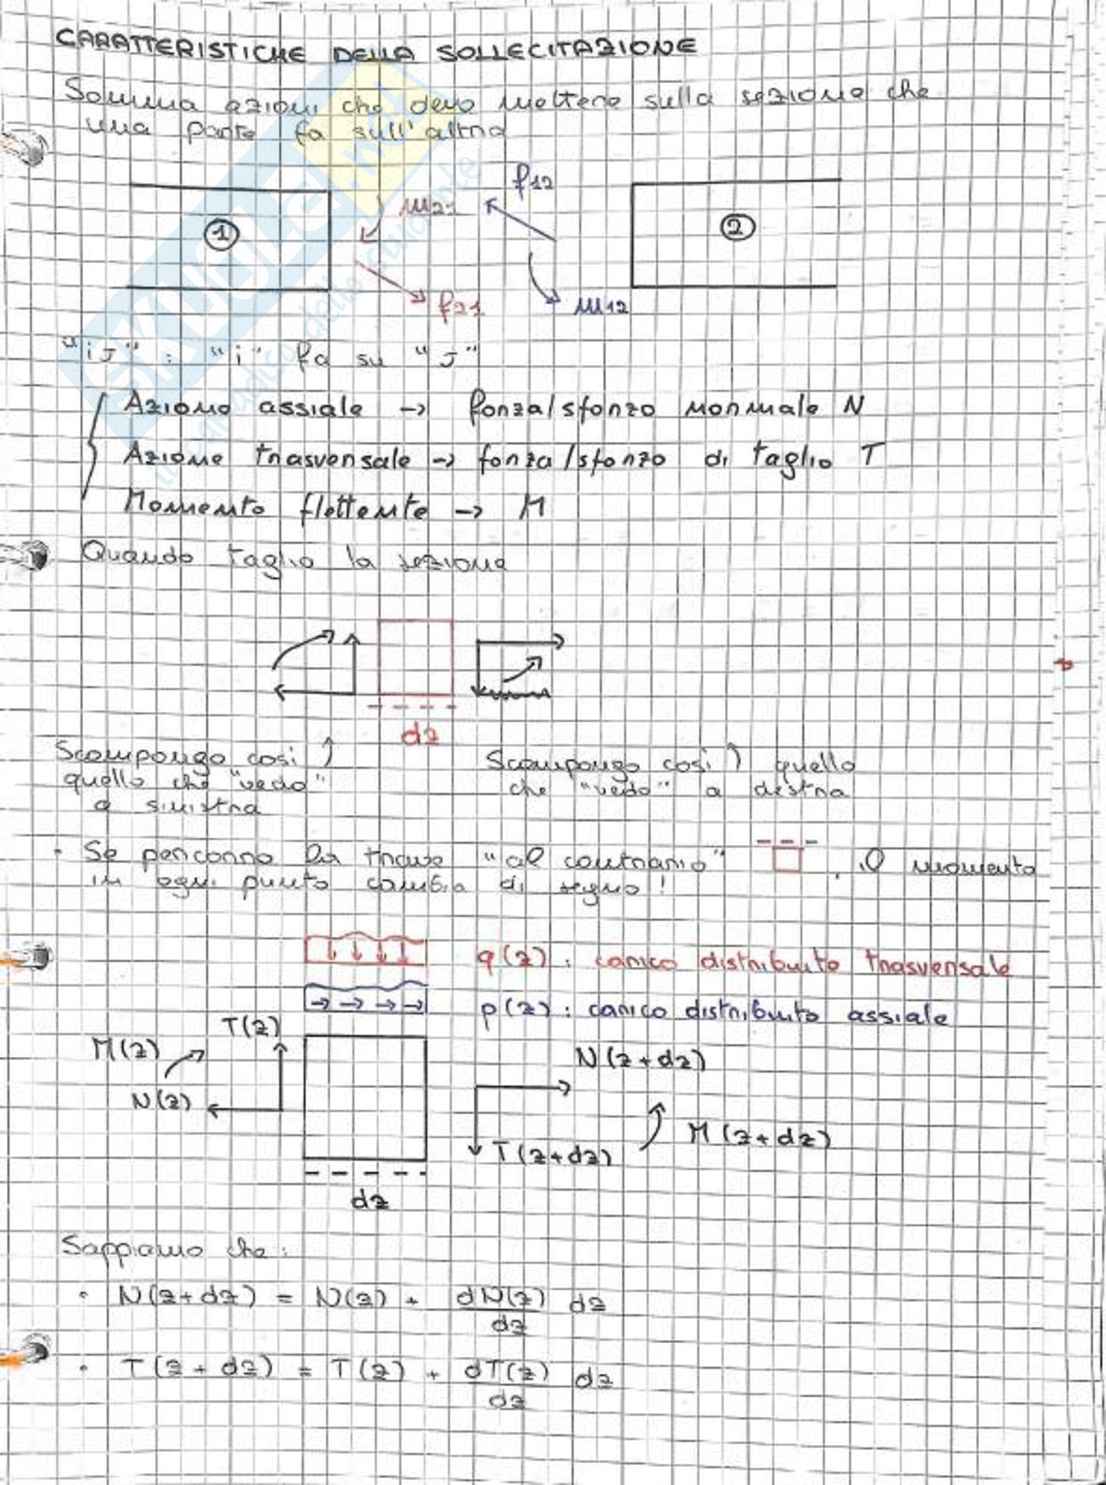 CARATTERISTICHE DELLA SOLLECITAZIONE
Somma azioni che devo mettere sulla sezione che
una parte fa sull'altra
f12
m21
1
2
f21
m12
"iJ" : "i" fa su "J"
Azione assiale -> forza/sforzo normale N
Azione trasversale -> forza/sforzo di taglio T
Momento flettente -> M
Quando taglio la sezione
dz
Scompongo così
quello che "vedo"
a sinistra
Scompongo così quello
che "vedo" a destra
• Se percorro la trave "al contrario" , il momento
in ogni punto cambia di segno!
q(z) : carico distribuito trasversale
p(z) : carico distribuito assiale
T(z)
M(z)
N(z+dz)
N(z)
M(z+dz)
T(z+dz)
dz
Sappiamo che:
• N(z+dz) = N(z) + dN(z)/dz dz
• T(z+dz) = T(z) + dT(z)/dz dz